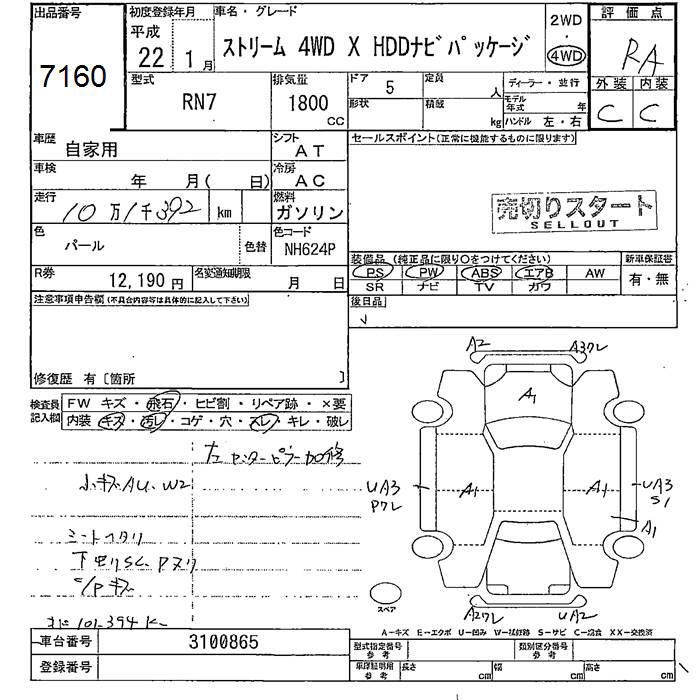 出品番号
7160
初度登録年月
平成
22年 1月
車名・グレード
ストリーム 4WD X HDDナビパッケージ
2WD
・
4WD
評価点
RA
外装 内装
C C
型式
RN7
排気量
1800
CC
ドア 5
定員 人
形状
積載 kg
ディーラー・並行
モデル年式 年
ハンドル 左・右
車歴
自家用
シフト
AT
車検 年 月( 日)
冷房
AC
走行
10万1千392 km
燃料
ガソリン
色
パール
色替
色コード
NH624P
R券
12,190円
名変通知期限 月 日
セールスポイント(正常に機能するものに限ります)
売切りスタート
SELLOUT
装備品 (純正品に限り○をつけてください)
PS PW ABS エアB AW
SR ナビ TV カワ
新車保証書
有・無
後日品
注意事項申告欄(不具合内容等は具体的に記入して下さい)
修復歴 有〔箇所 〕
検査員記入欄
FW キズ・飛石・ヒビ割・リペア跡・×要
内装 キズ・汚レ・コゲ・穴・スレ・キレ・破レ
左センターピラー加修
小キズAU、W2
シートヘタリ
A2
A3ワレ
A1
UA3
Pワレ
A1
A1
UA3
S1
A1
A2ワレ
UA2
スペア
A−キズ E−エクボ U−凹み W−板修跡 S−サビ C−腐食 XX−交換済
車台番号
3100865
登録番号
型式指定番号
参考
類別区分番号
参考
車庫証明用
参考
長さ cm
幅 cm
高さ cm